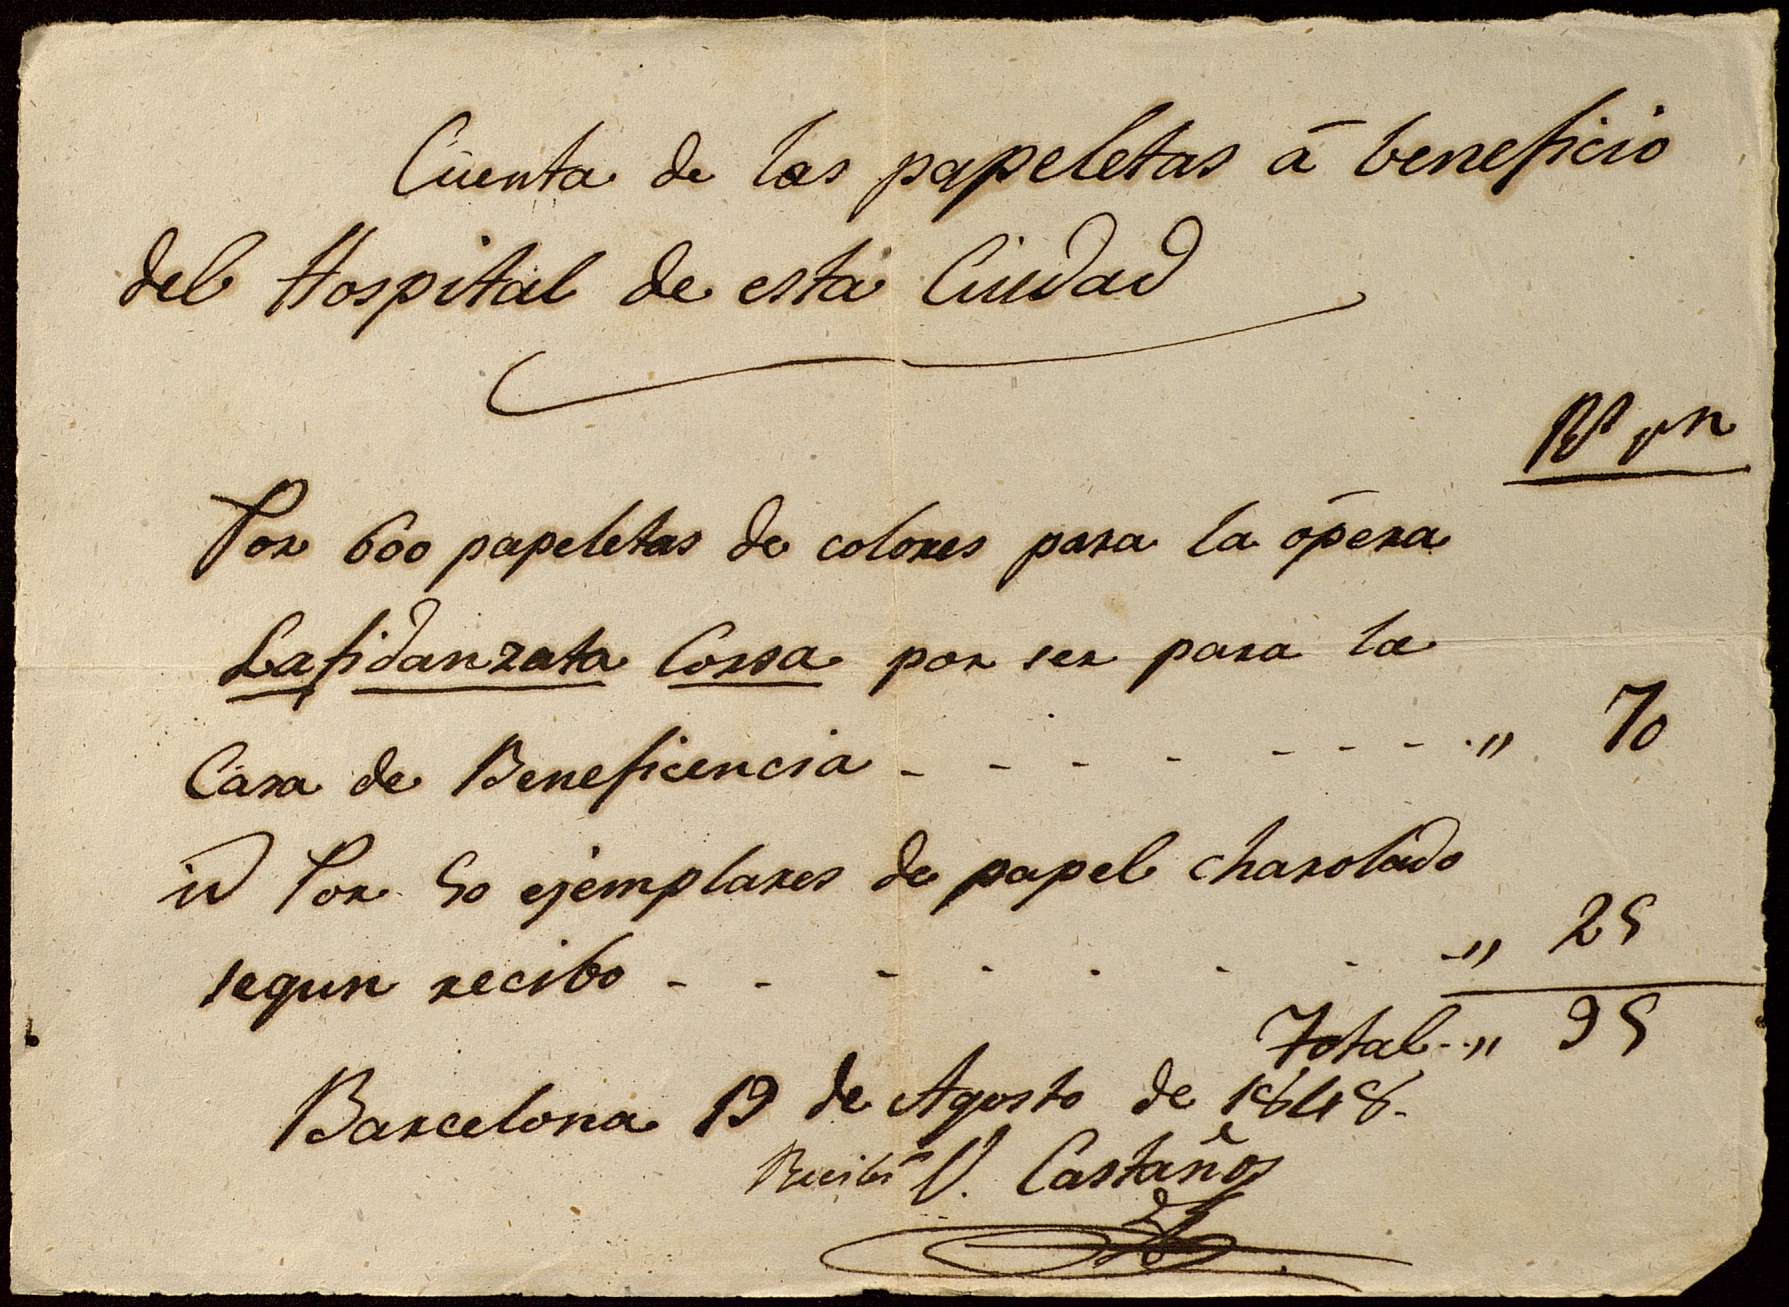 Cuenta de las papeletas á beneficio
del Hospital de esta Ciudad
Rs vn
Por 600 papeletas de colores para la ópera
La fidanzata Corsa por ser para la
Casa de Beneficencia - - - - - - - - " 70
id Por 50 ejemplares de papel charolado
segun recibo - - - - - - - " 25
Total " 95
Barcelona 19 de Agosto de 1848.
Recibí V. Castaños